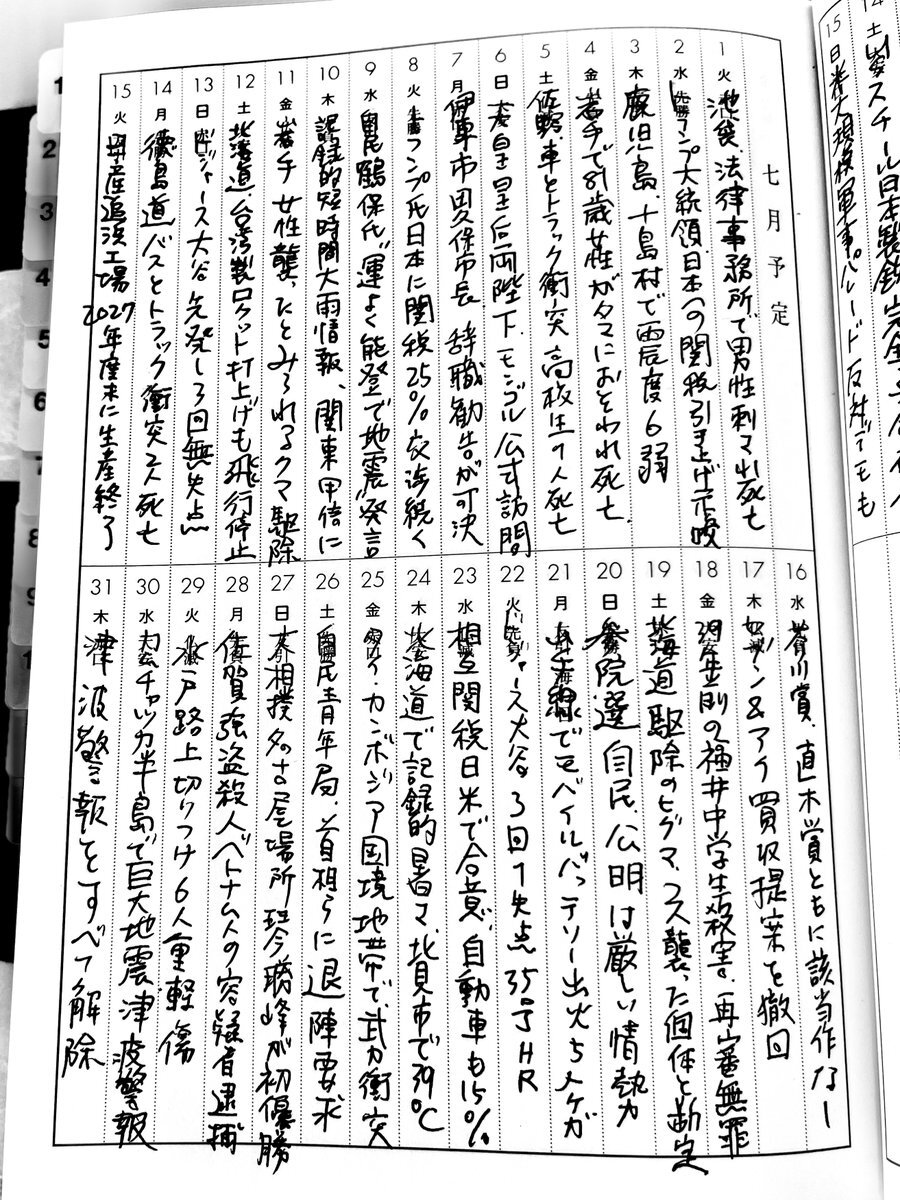 七月予定
1 火 池袋、法律事務所で男性刺され死亡
2 水 トランプ大統領、日本への関税引き上げ示唆
3 木 鹿児島、十島村で震度6弱
4 金 岩手で81歳女性がクマにおそわれ死亡
5 土 佐野、車とトラック衝突 高校生ら1人死亡
6 日 天皇皇后両陛下、モンゴル公式訪問
7 月 伊東市田久保市長 辞職勧告が可決
8 火 トランプ氏日本に関税25%交渉続く
9 水 自民鶴保氏“運よく能登で地震”発言
10 木 記録的短時間大雨情報、関東甲信に
11 金 岩手 女性襲ったとみられるクマ駆除
12 土 北海道、台湾製ロケット打上げも飛行停止
13 日 ドジャース大谷先発し3回無失点
14 月 徳島道バスとトラック衝突2人死亡
15 火 日産追浜工場2027年度末に生産終了
16 水 芥川賞、直木賞ともに該当作なし
17 木 セブン&アイ買収提案を撤回
18 金 39年前の福井中学生殺害、再審無罪
19 土 北海道駆除のヒグマ、2人襲った個体と断定
20 日 参院選 自民、公明は厳しい情勢
21 月 山手線でモバイルバッテリー出火5人ケガ
22 火 ドジャース大谷3回1失点35号HR
23 水 相互関税日米で合意、自動車も15%
24 木 北海道で記録的暑さ、北見市で39℃
25 金 タイ・カンボジア国境地帯で武力衝突
26 土 自民青年局、首相らに退陣要求
27 日 大相撲名古屋場所 琴勝峰が初優勝
28 月 佐賀強盗殺人ベトナム人の容疑者逮捕
29 火 水戸路上切りつけ6人重軽傷
30 水 カムチャツカ半島で巨大地震 津波警報
31 木 津波警報をすべて解除
14 土
15 日 米大規模軍事パレード 反対デモも